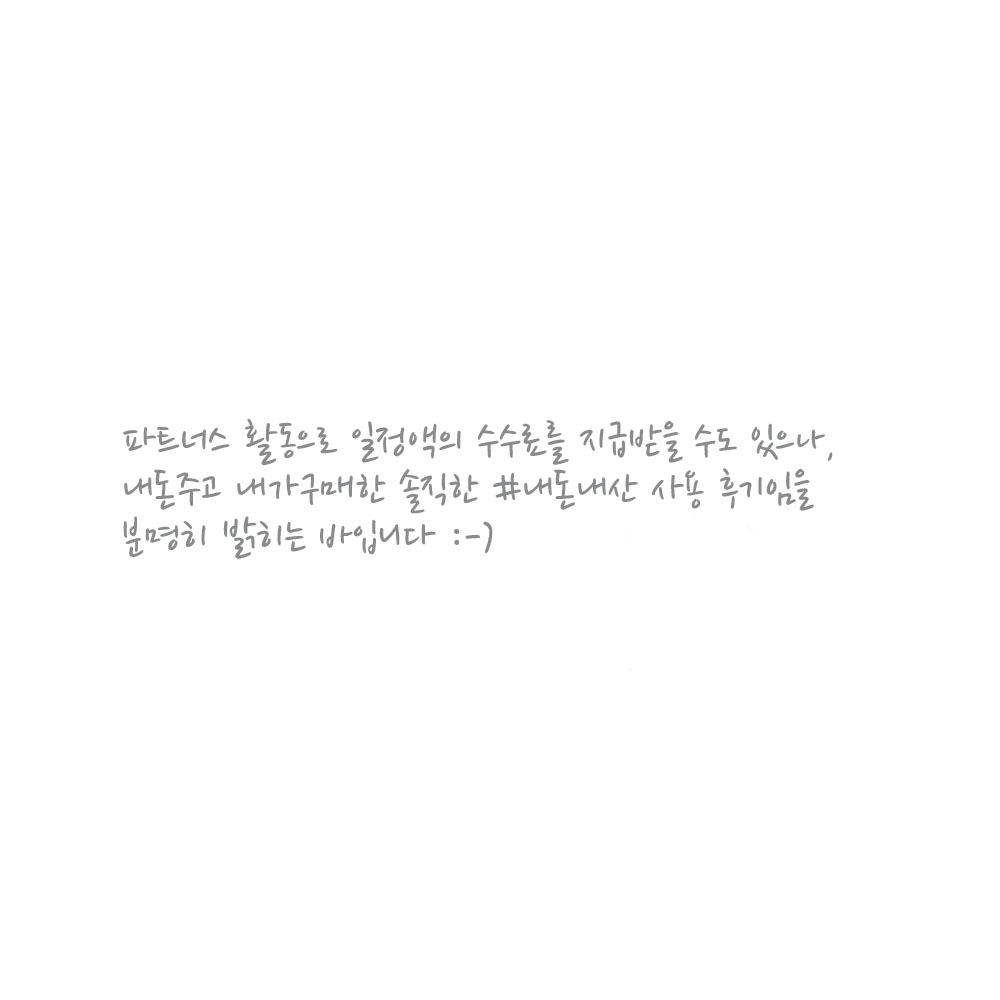 파트너스 활동으로 일정액의 수수료를 지급받을 수도 있으나,
내돈주고 내가구매한 솔직한 #내돈내산 사용 후기임을
분명히 밝히는 바입니다 :-)